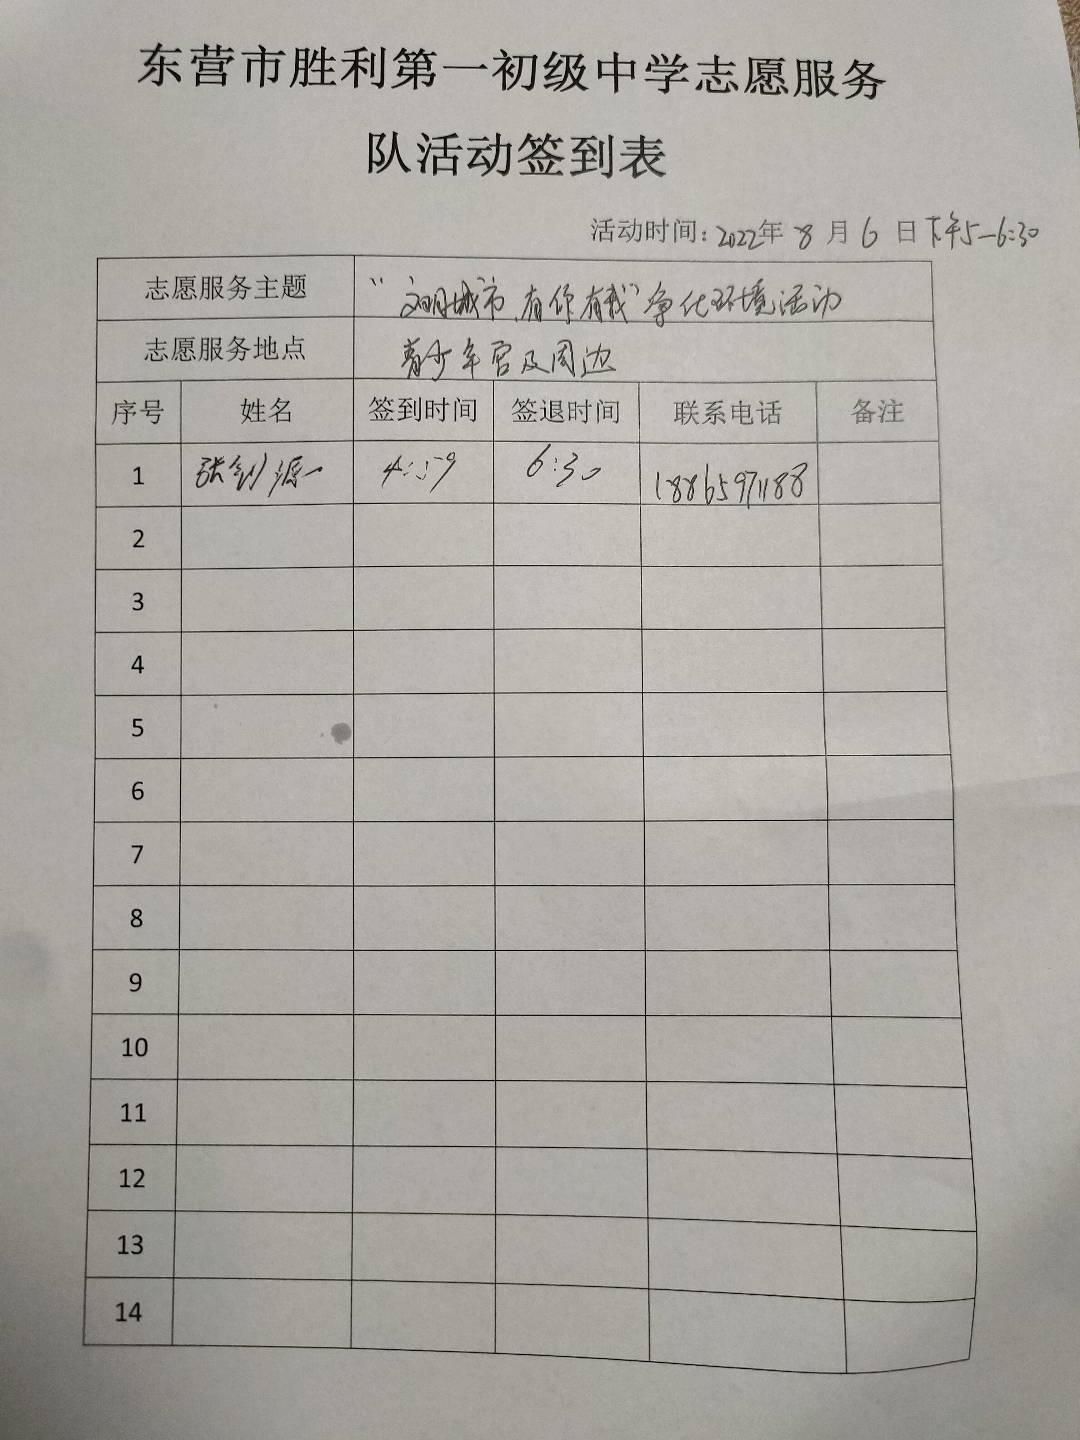 东营市胜利第一初级中学志愿服务
队活动签到表
活动时间：2022年 8 月 6 日 下午5—6:30
志愿服务主题 “文明城市、有你有我”净化环境活动
志愿服务地点 青少年宫及周边
序号 姓名 签到时间 签退时间 联系电话 备注
1 张 源一 4:59 6:30 18865971188
2
3
4
5
6
7
8
9
10
11
12
13
14